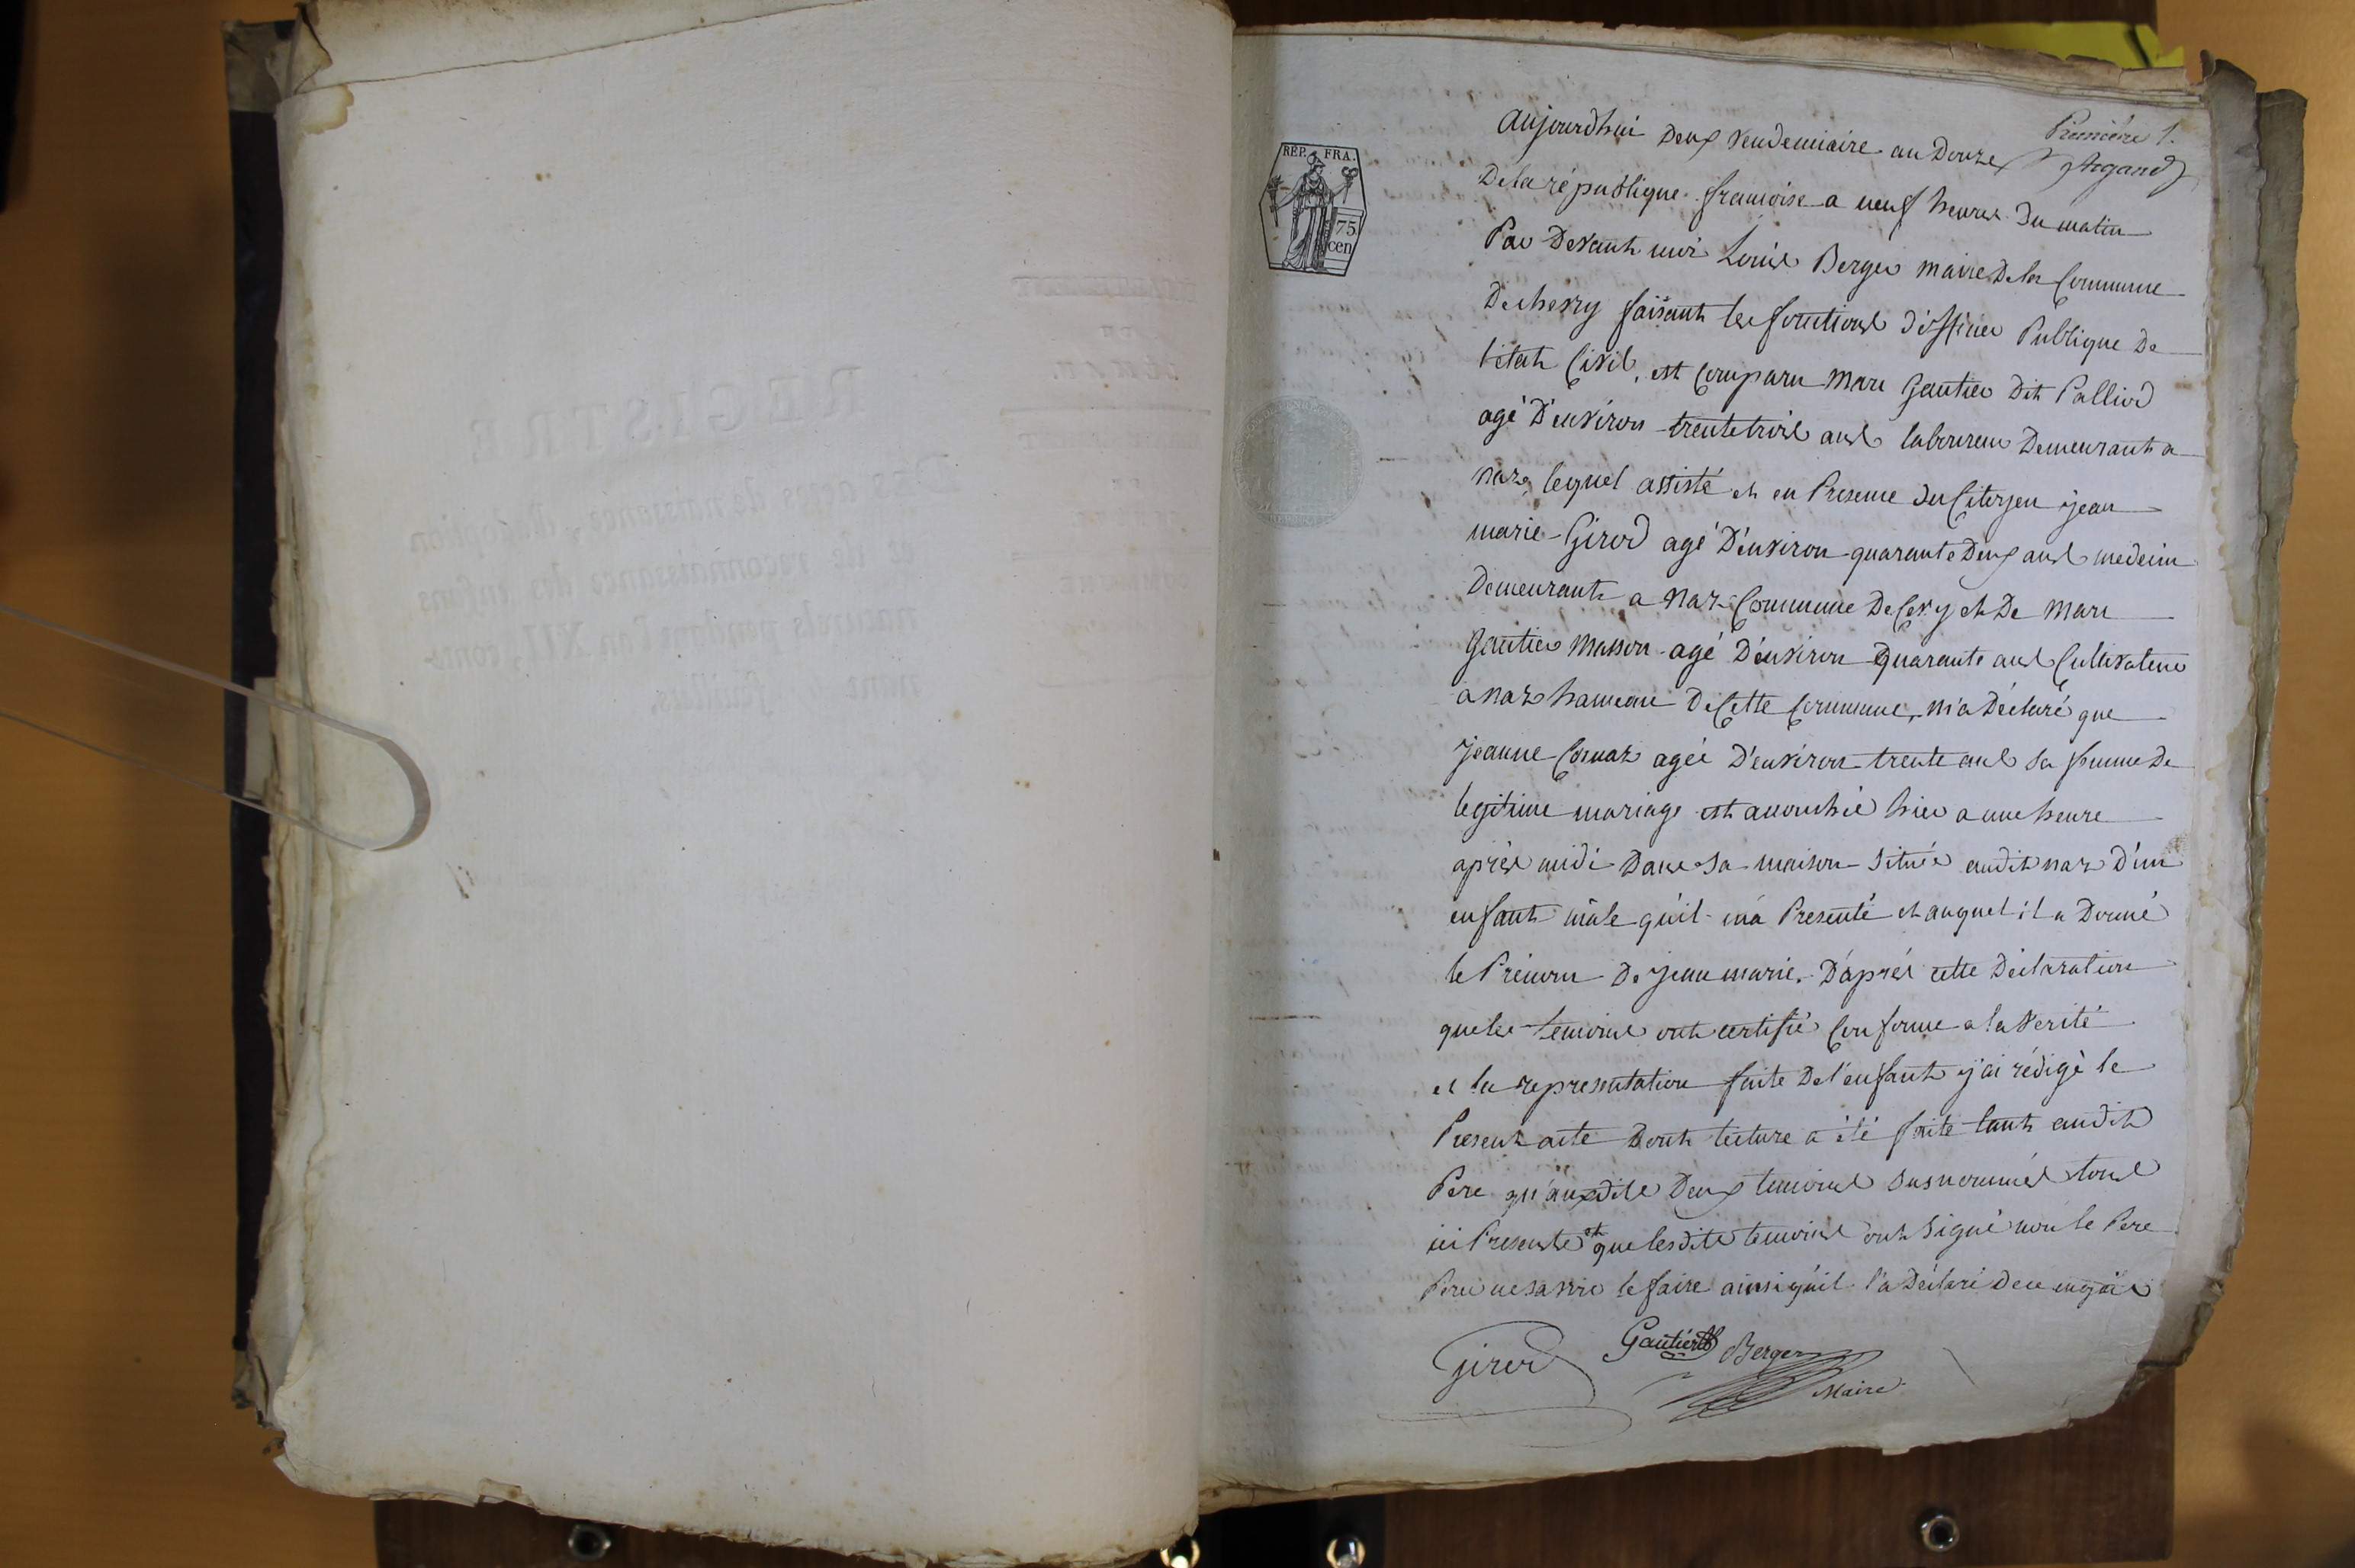 Première 1.
Argand
REP. FRA.
75
cen
aujourdhui deux vendemiaire an Douze
De la république francoise a neuf heures du matin
Par Devant moi Louis Berger maire De la Commune
De chevry faisant les fonctions d'officier Publique De
l'etat Civil, est comparu Marc Gautier Dit Palliod
agé D'environ trente trois ans laboureur Demeurant a
naz, lequel assisté et en Presence du Citoyen jean
marie Girod agé D'environ quarante Deux ans medecin
Demeurant a Naz Commune De Cevry et De Marc
Gautier Masson agé D'environ quarante ans Cultivateur
a naz hameau De Cette Commune, m'a Déclaré que
jeanne Cornaz agée D'environ trente ans sa femme De
legitime mariage est accouchée hier a une heure
après midi Dans sa maison située audit naz D'un
enfant mâle qu'il m'a Presenté et auquel il a Donné
le Prénom De jean marie. D'après cette Déclaration
que les temoins ont certifié Conforme a la Verité
et la representation faite De l'enfant j'ai rédigé le
Present acte Dont lecture a été faite tant audit
Pere qu'auxdits Deux temoins susnommés tous
ici Presents et que lesdits temoins ont signé non le Pere
Pour ne savoir le faire ainsi qu'il l'a Déclaré de ce enquis
Girod Gautier Berger
Maire
REGISTRE
Des actes de naissance, d'adoption
et de reconnaissance des enfans
naturels pendant l'an XII, conte-
nant feuillets.